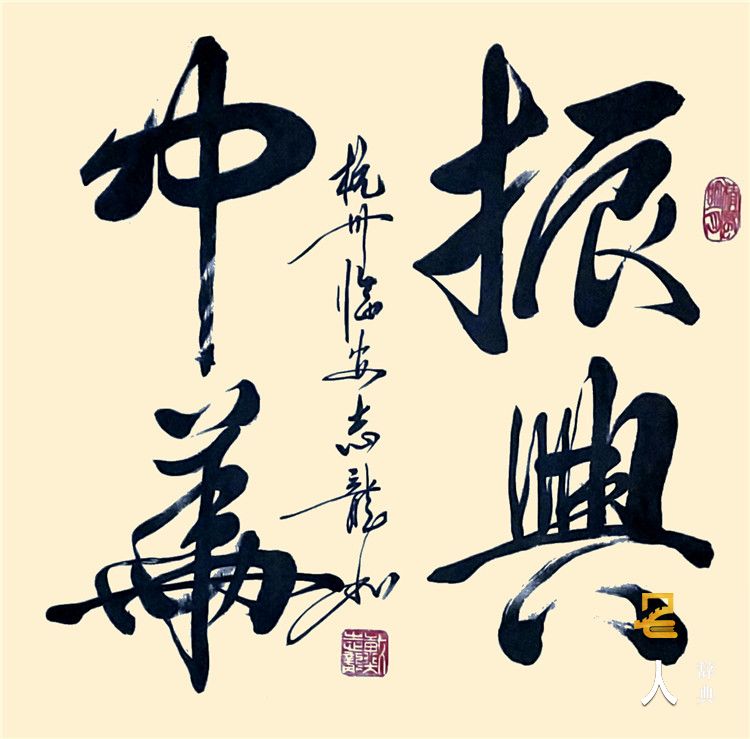 振興
中華
杭州臨安志龍
名人
辞典